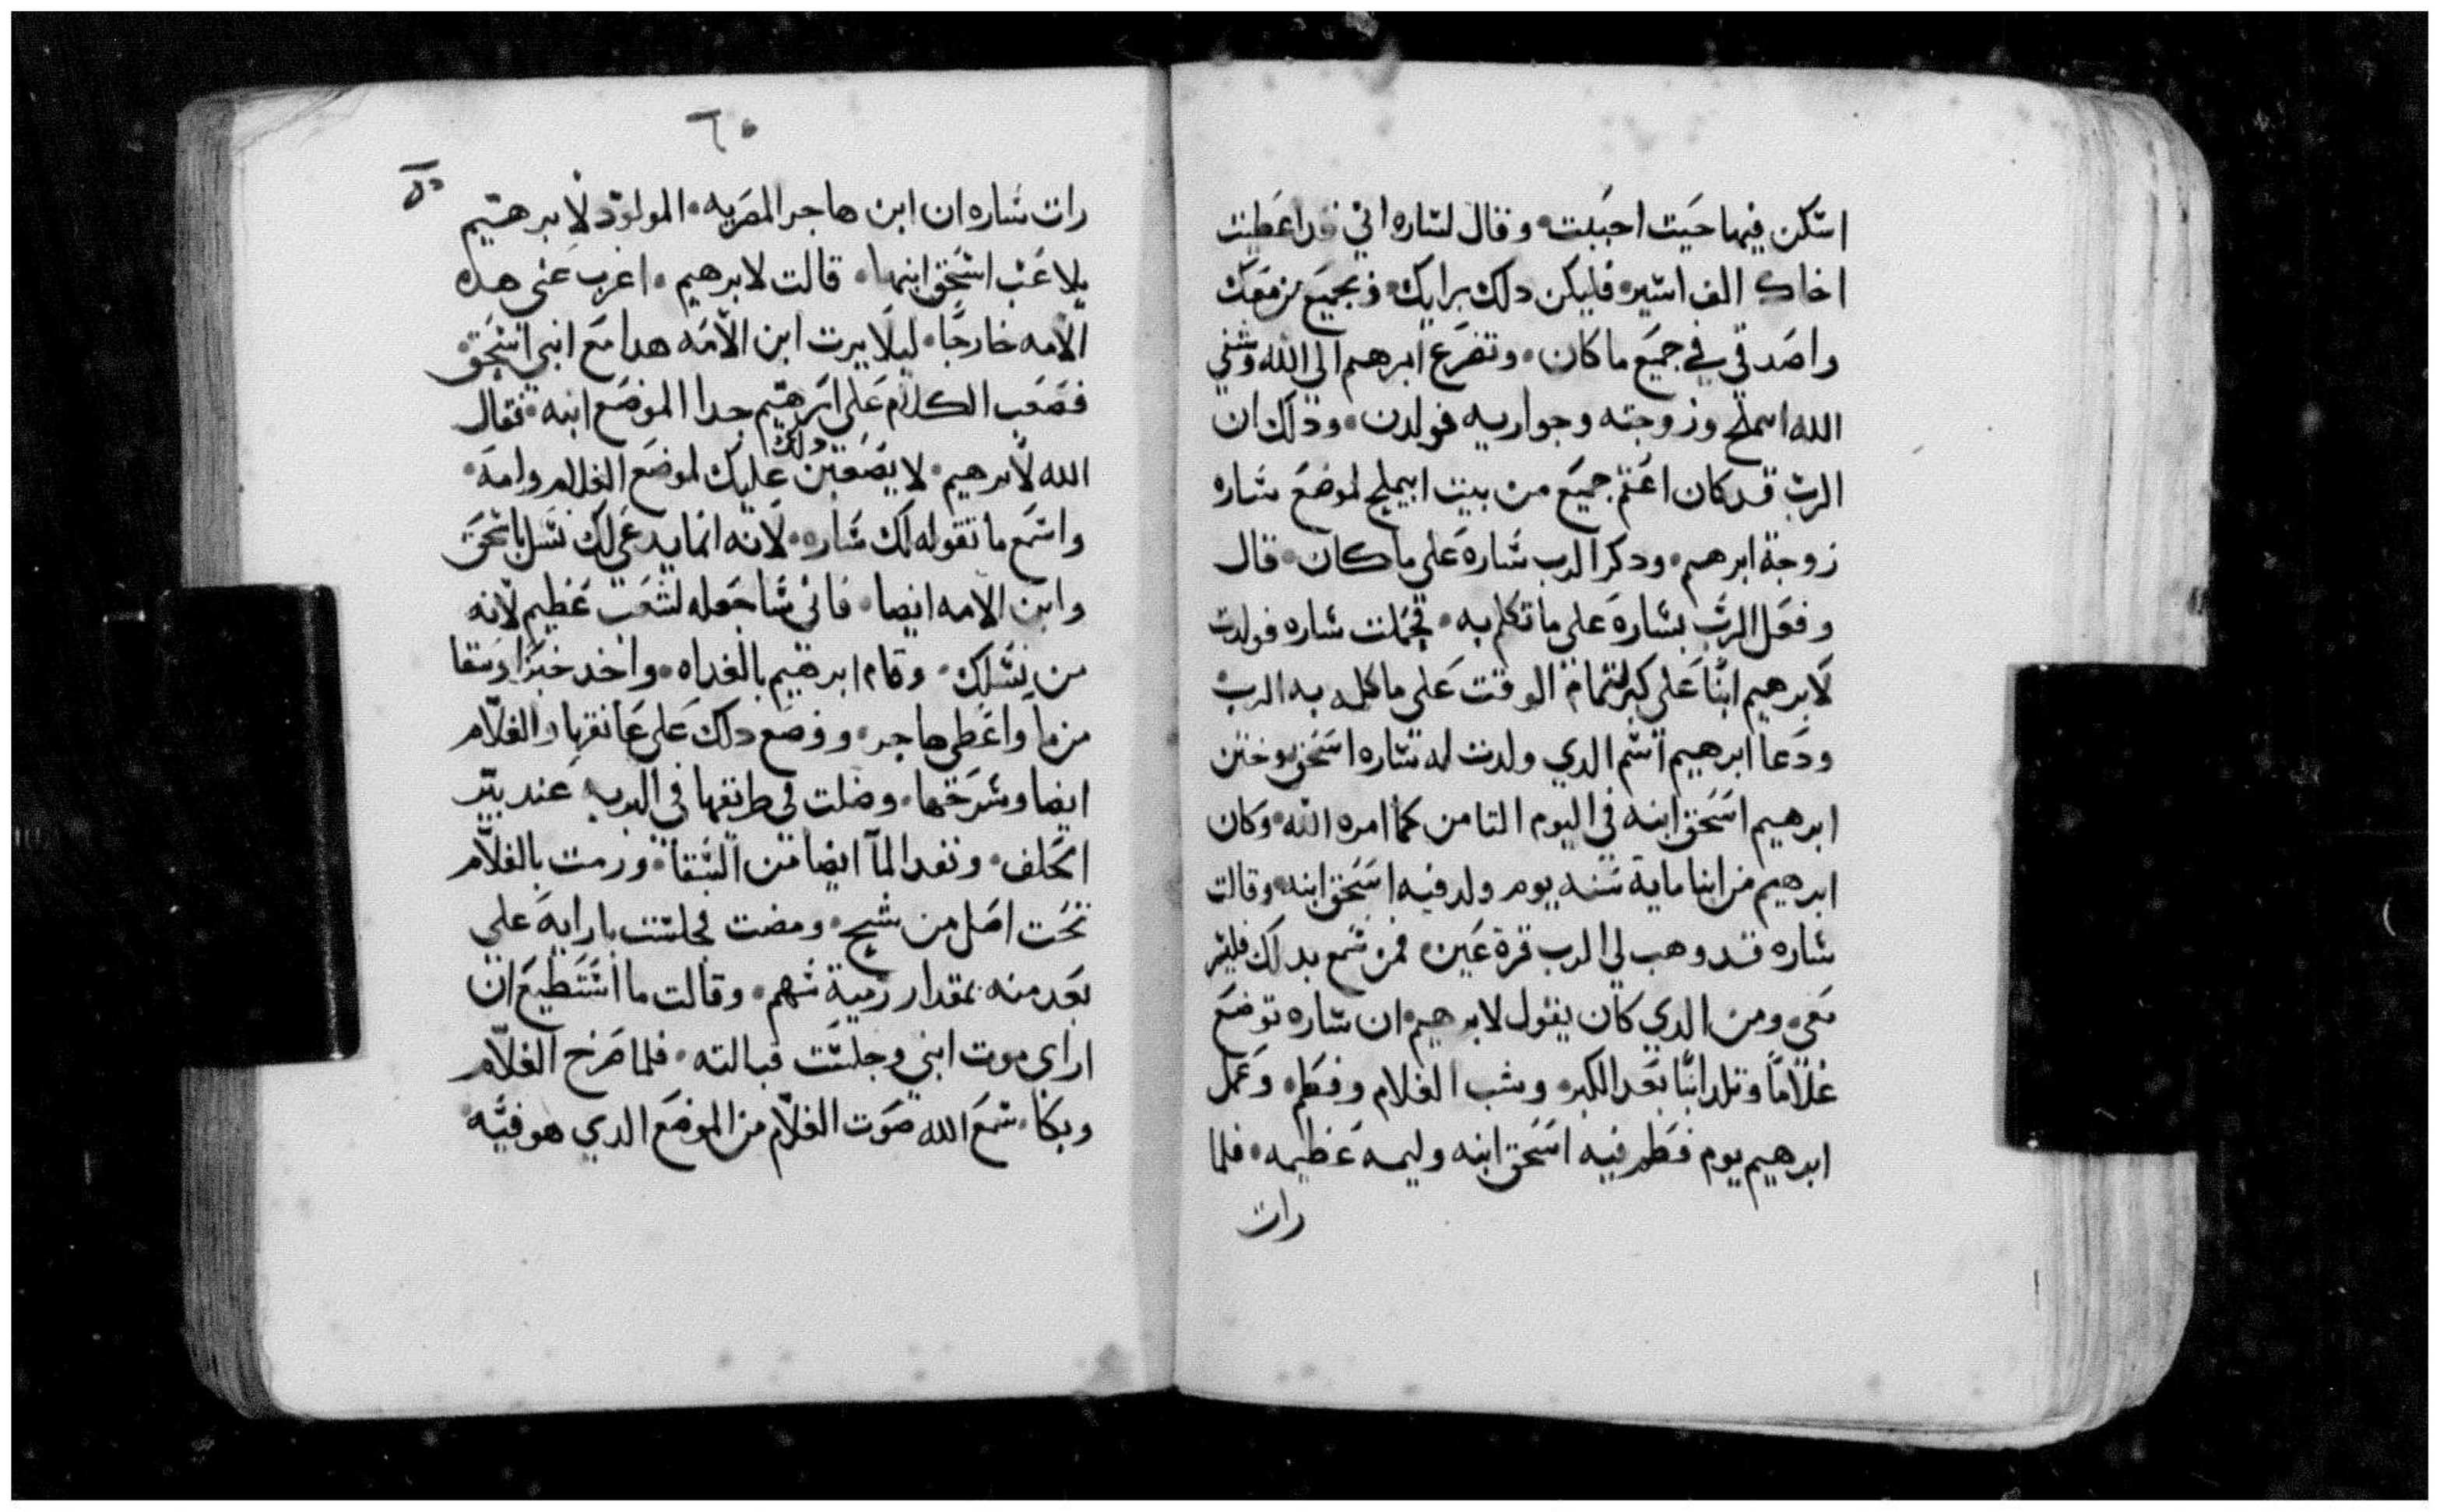 اسكن فيها حيت احببت وقال لساره اني قد اعطيت
اخاك الف استير فليكن دلك برايك و بجميع من معك
واصدقي في جميع ما كان وتضرع ابرهيم الي الله وشفي
الله اسملح وزوجته وجواريه فولدن ودلك ان
الرب قد كان اعقم جميع من بيت ابيملح لموضع ساره
زوجة ابرهيم ودكر الرب ساره علي ما كان قال
وفعل الرب بساره علي ما تكلم به فحملت ساره فولدت
لابرهيم ابنا علي كبر لتمام الوقت علي ما كلمه به الرب
ودعا ابرهيم اسم الدي ولدت له ساره اسحق وختن
ابرهيم اسحق ابنه في اليوم التامن كما امره الله وكان
ابرهيم من ابنا ماية سنه يوم ولد فيه اسحق ابنه وقالت
ساره قد وهب لي الرب قرة عين فمن سمع بدلك فليسر
معي ومن الدي كان يقول لابرهيم ان ساره توضع
غلاما وتلد ابنا بعد الكبر وشب الغلام وفطم وعمل
ابرهيم يوم فطم فيه اسحق ابنه وليمه عظيمه فلما
رات
٦٠
رات ساره ان ابن هاجر المصريه المولود لابرهيم
يلاعب اسحق ابنها قالت لابرهيم اعزب عني هده
الامه خارجا ليلا يرت ابن الامه هدا مع ابني اسحق
فصعب الكلام علي ابرهيم جدا لموضع ابنه فقال
الله لابرهيم لا يصعبن دلك عليك لموضع الغلام وامه
واسمع ما تقوله لك ساره لانه انما يدعي لك نسل باسحق
وابن الامه ايضا فاني ساجعله لشعب عظيم لانه
من نسلك وقام ابرهيم بالغداه واخد خبزا وسقا
من ما واعطي هاجر ووضع دلك علي عاتقها والغلام
ايضا وسرحها وضلت في طريقها في البريه عند بير
الحلف ونفد الما ايضا من السقا ورمت بالغلام
تحت اصل من شيح ومضت فجلست بارايه علي
بعد منه بمقدار رمية سهم وقالت ما استطيع ان
اراي موت ابني وجلست قبالته فلما صرخ الغلام
وبكا سمع الله صوت الغلام من الموضع الدي هو فيه